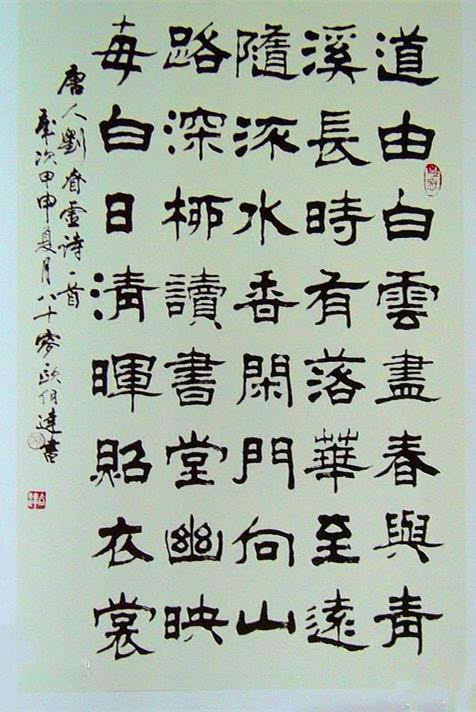 道由白雲盡春與青
溪長時有落華至遠
隨流水香閑門向山
路深柳讀書堂幽映
每白日清暉照衣裳
唐人劉眘虛诗一首
歲次甲申夏月八十歐伯達書